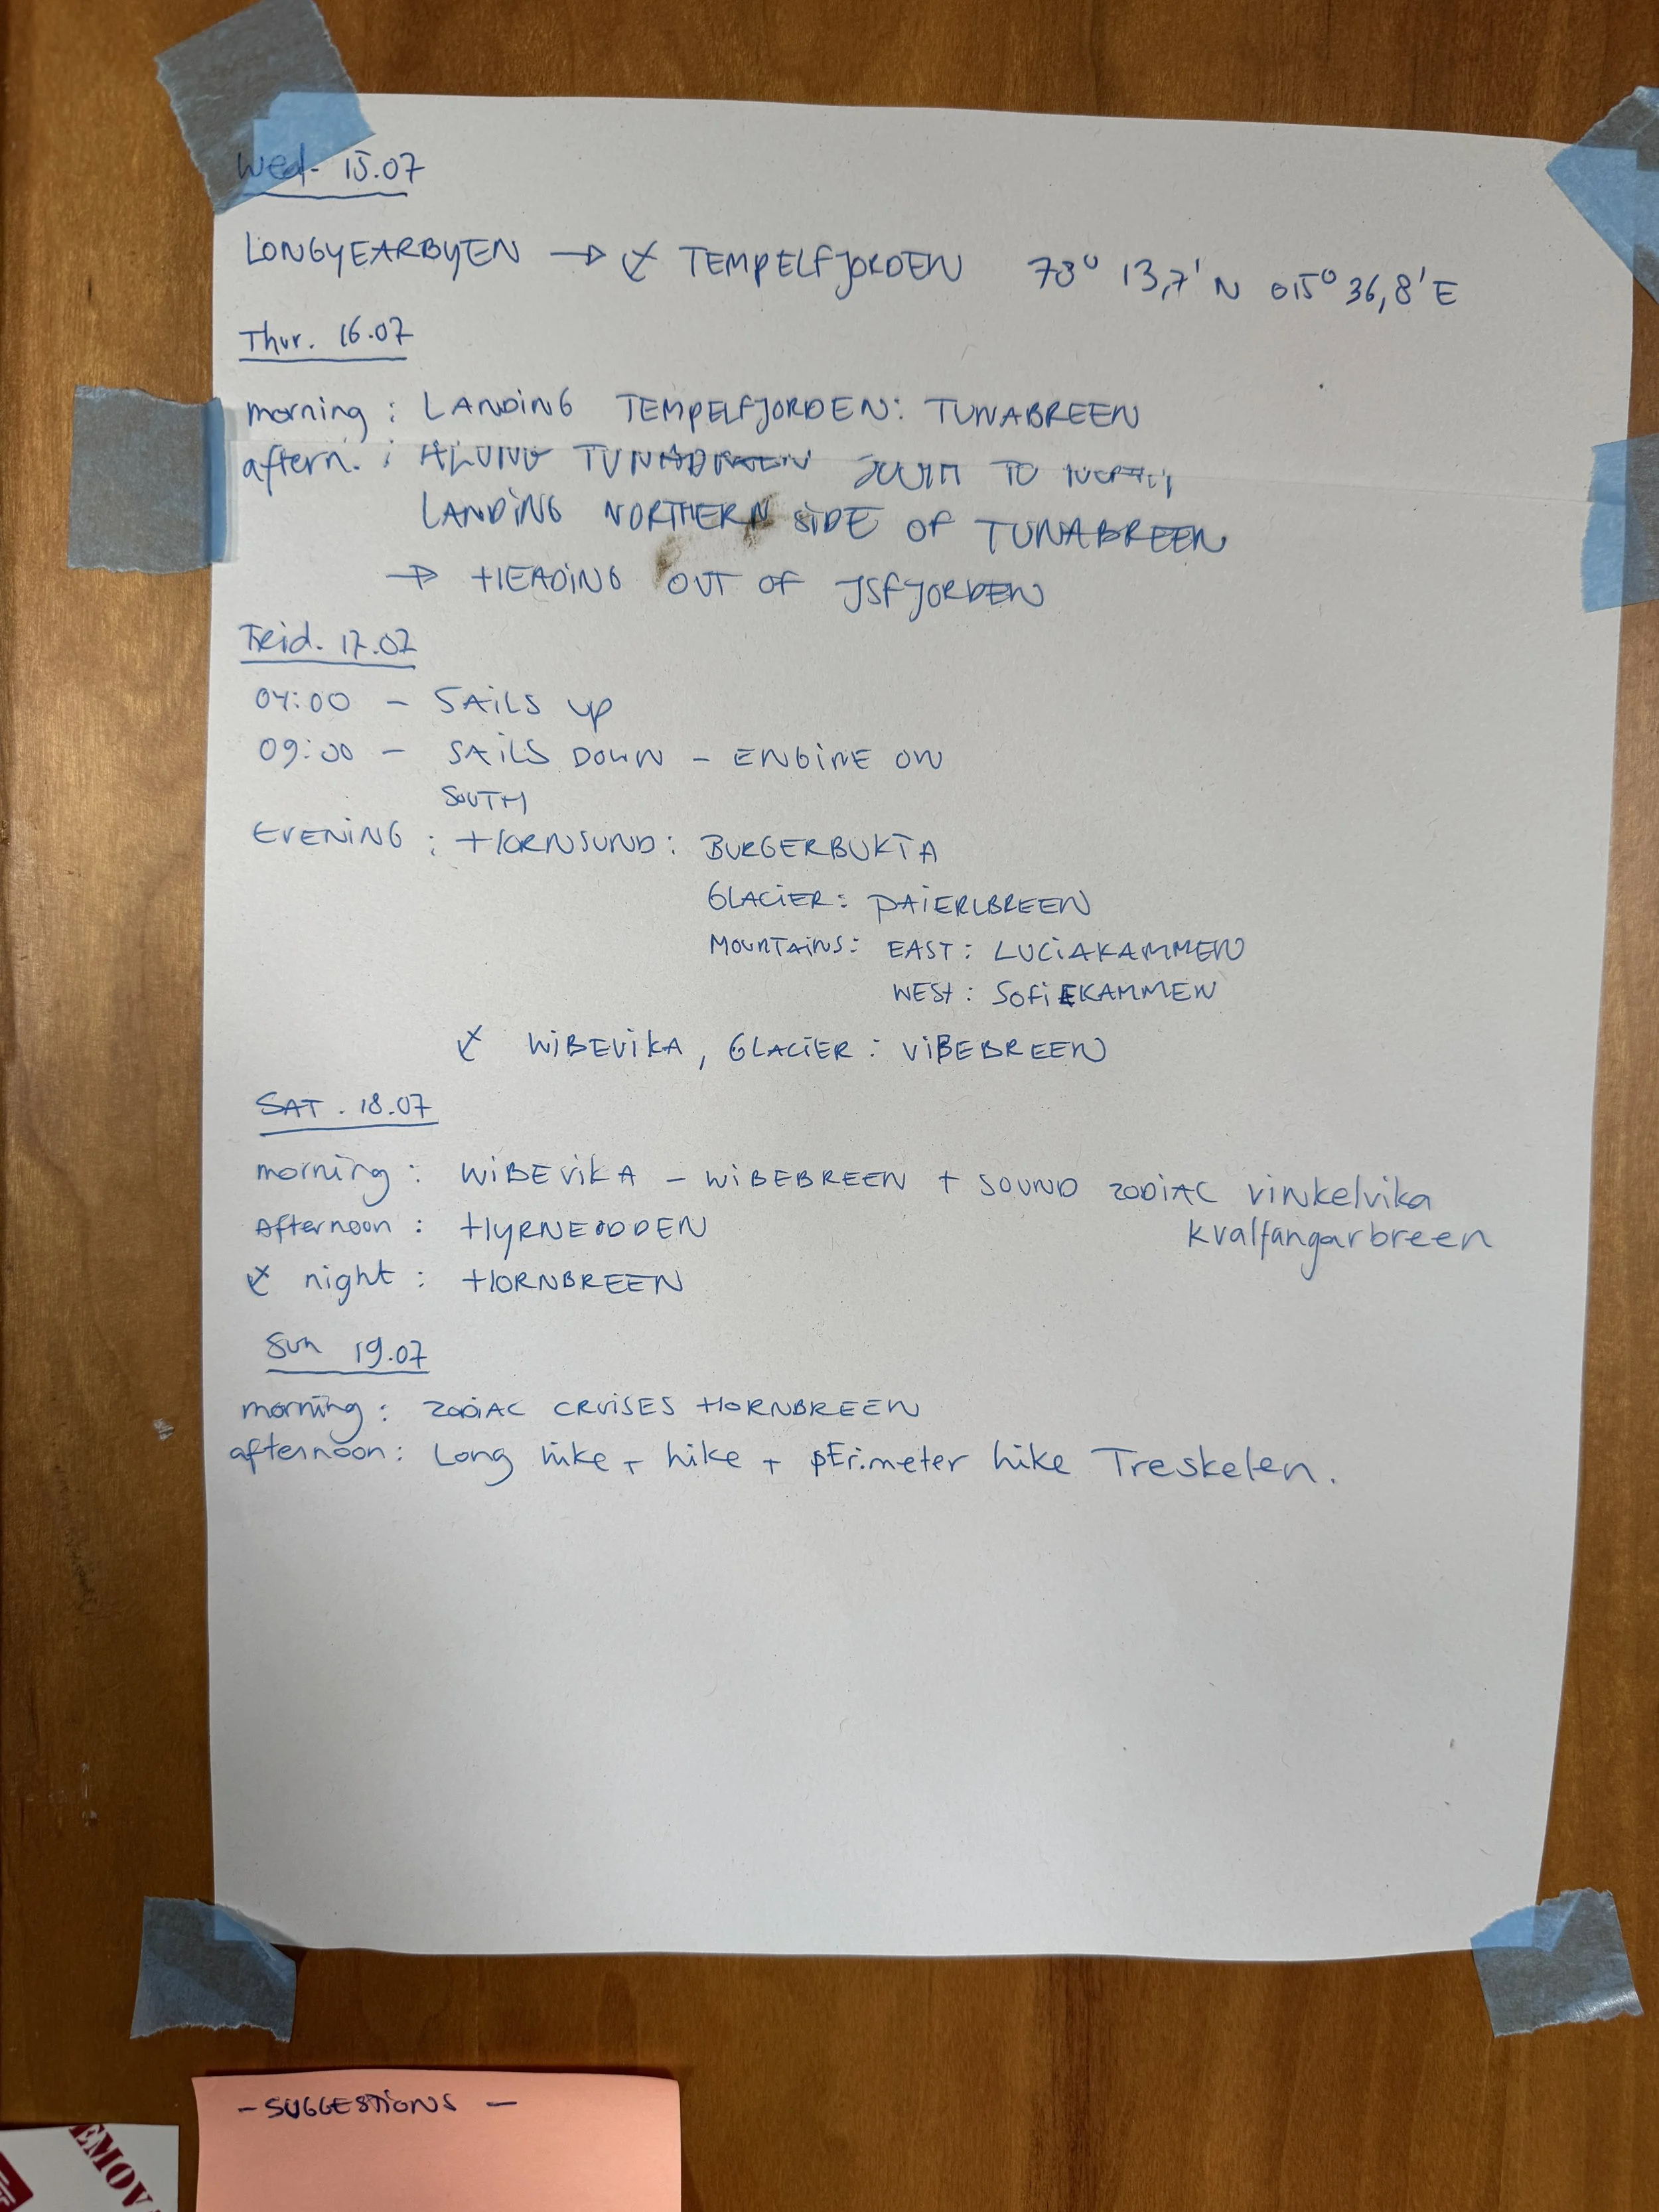 Wed. 15.07
LONGYEARBYEN → ⚓ TEMPELFJORDEN 78° 13,7' N 015° 36,8' E
Thur. 16.07
morning : LANDING TEMPELFJORDEN: TUNABREEN
aftern. : ALONG TUNABREEN SOUTH TO NORTH
LANDING NORTHERN SIDE OF TUNABREEN
→ HEADING OUT OF ISFJORDEN
Freid. 17.07
04:00 - SAILS UP
09:00 - SAILS DOWN - ENGINE ON
SOUTH
EVENING : HORNSUND: BURGERBUKTA
GLACIER: PAIERLBREEN
MOUNTAINS: EAST: LUCIAKAMMEN
WEST: SOFIEKAMMEN
⚓ WIBEVIKA, GLACIER: VIBEBREEN
SAT. 18.07
morning : WIBEVIKA - WIBEBREEN + SOUND ZODIAC vinkelvika
kvalfangarbreen
Afternoon : HYRNEODDEN
⚓ night : HORNBREEN
Sun 19.07
morning : ZODIAC CRUISES HORNBREEN
afternoon: Long hike + hike + pErimeter hike Treskelen.
- SUGGESTIONS -
EMOV